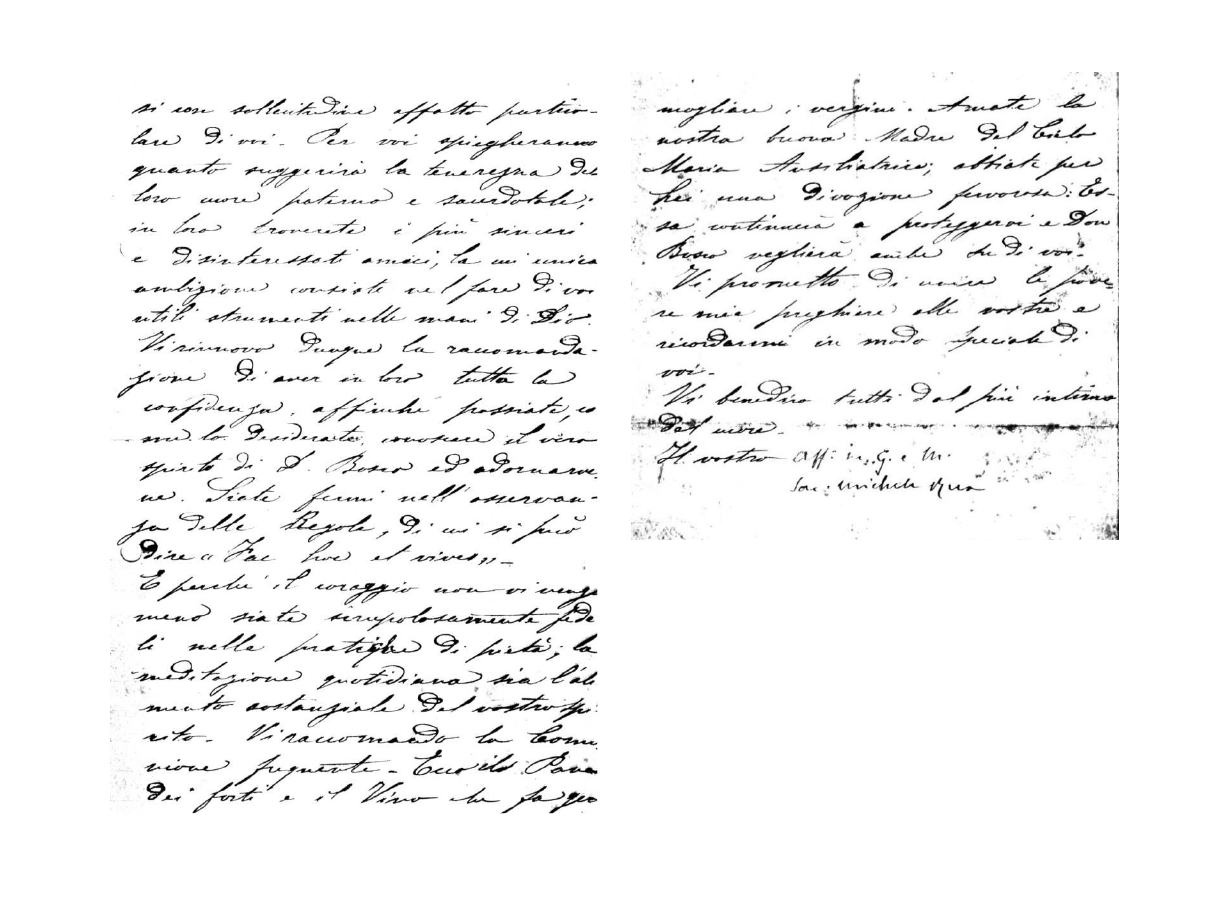 si con sollecitudine affatto partico-
lare di voi. Per voi spiegheranno
quanto suggerirà la tenerezza del
loro cuore paterno e sacerdotale;
in loro troverete i più sinceri
e disinteressati amici, la cui unica
ambizione consiste nel fare di voi
utili strumenti nelle mani di Dio.
Vi rinnovo dunque la raccomanda-
zione di aver in loro tutta la
confidenza, affinché possiate, co
me lo desiderate, conoscere il vero
spirito di D. Bosco ed adornarve
ne. Siate fermi nell'osservan-
za delle Regole, di cui si può
dire « Fac hoc et vives » -
E perché il coraggio non vi venga
meno siate scrupolosamente fede
li nelle pratiche di pietà; la
meditazione quotidiana sia l'ali
mento sostanziale del vostro spi
rito. Vi raccomando la Comu
nione frequente - Ecco il Pane
dei forti e il Vino che fa ger
mogliare i vergini. Amate la
nostra buona Madre del Cielo
Maria Ausiliatrice; abbiate per
Lei una divozione fervorosa: Es-
sa continuerà a proteggervi e Don
Bosco veglierà anche su di voi.
Vi prometto di unire le pove-
re mie preghiere alle vostre e
ricordarmi in modo speciale di
voi.
Vi benedico tutti dal più intimo
del cuore.
Il vostro Aff. in G. e M.
Sac. Michele Rua